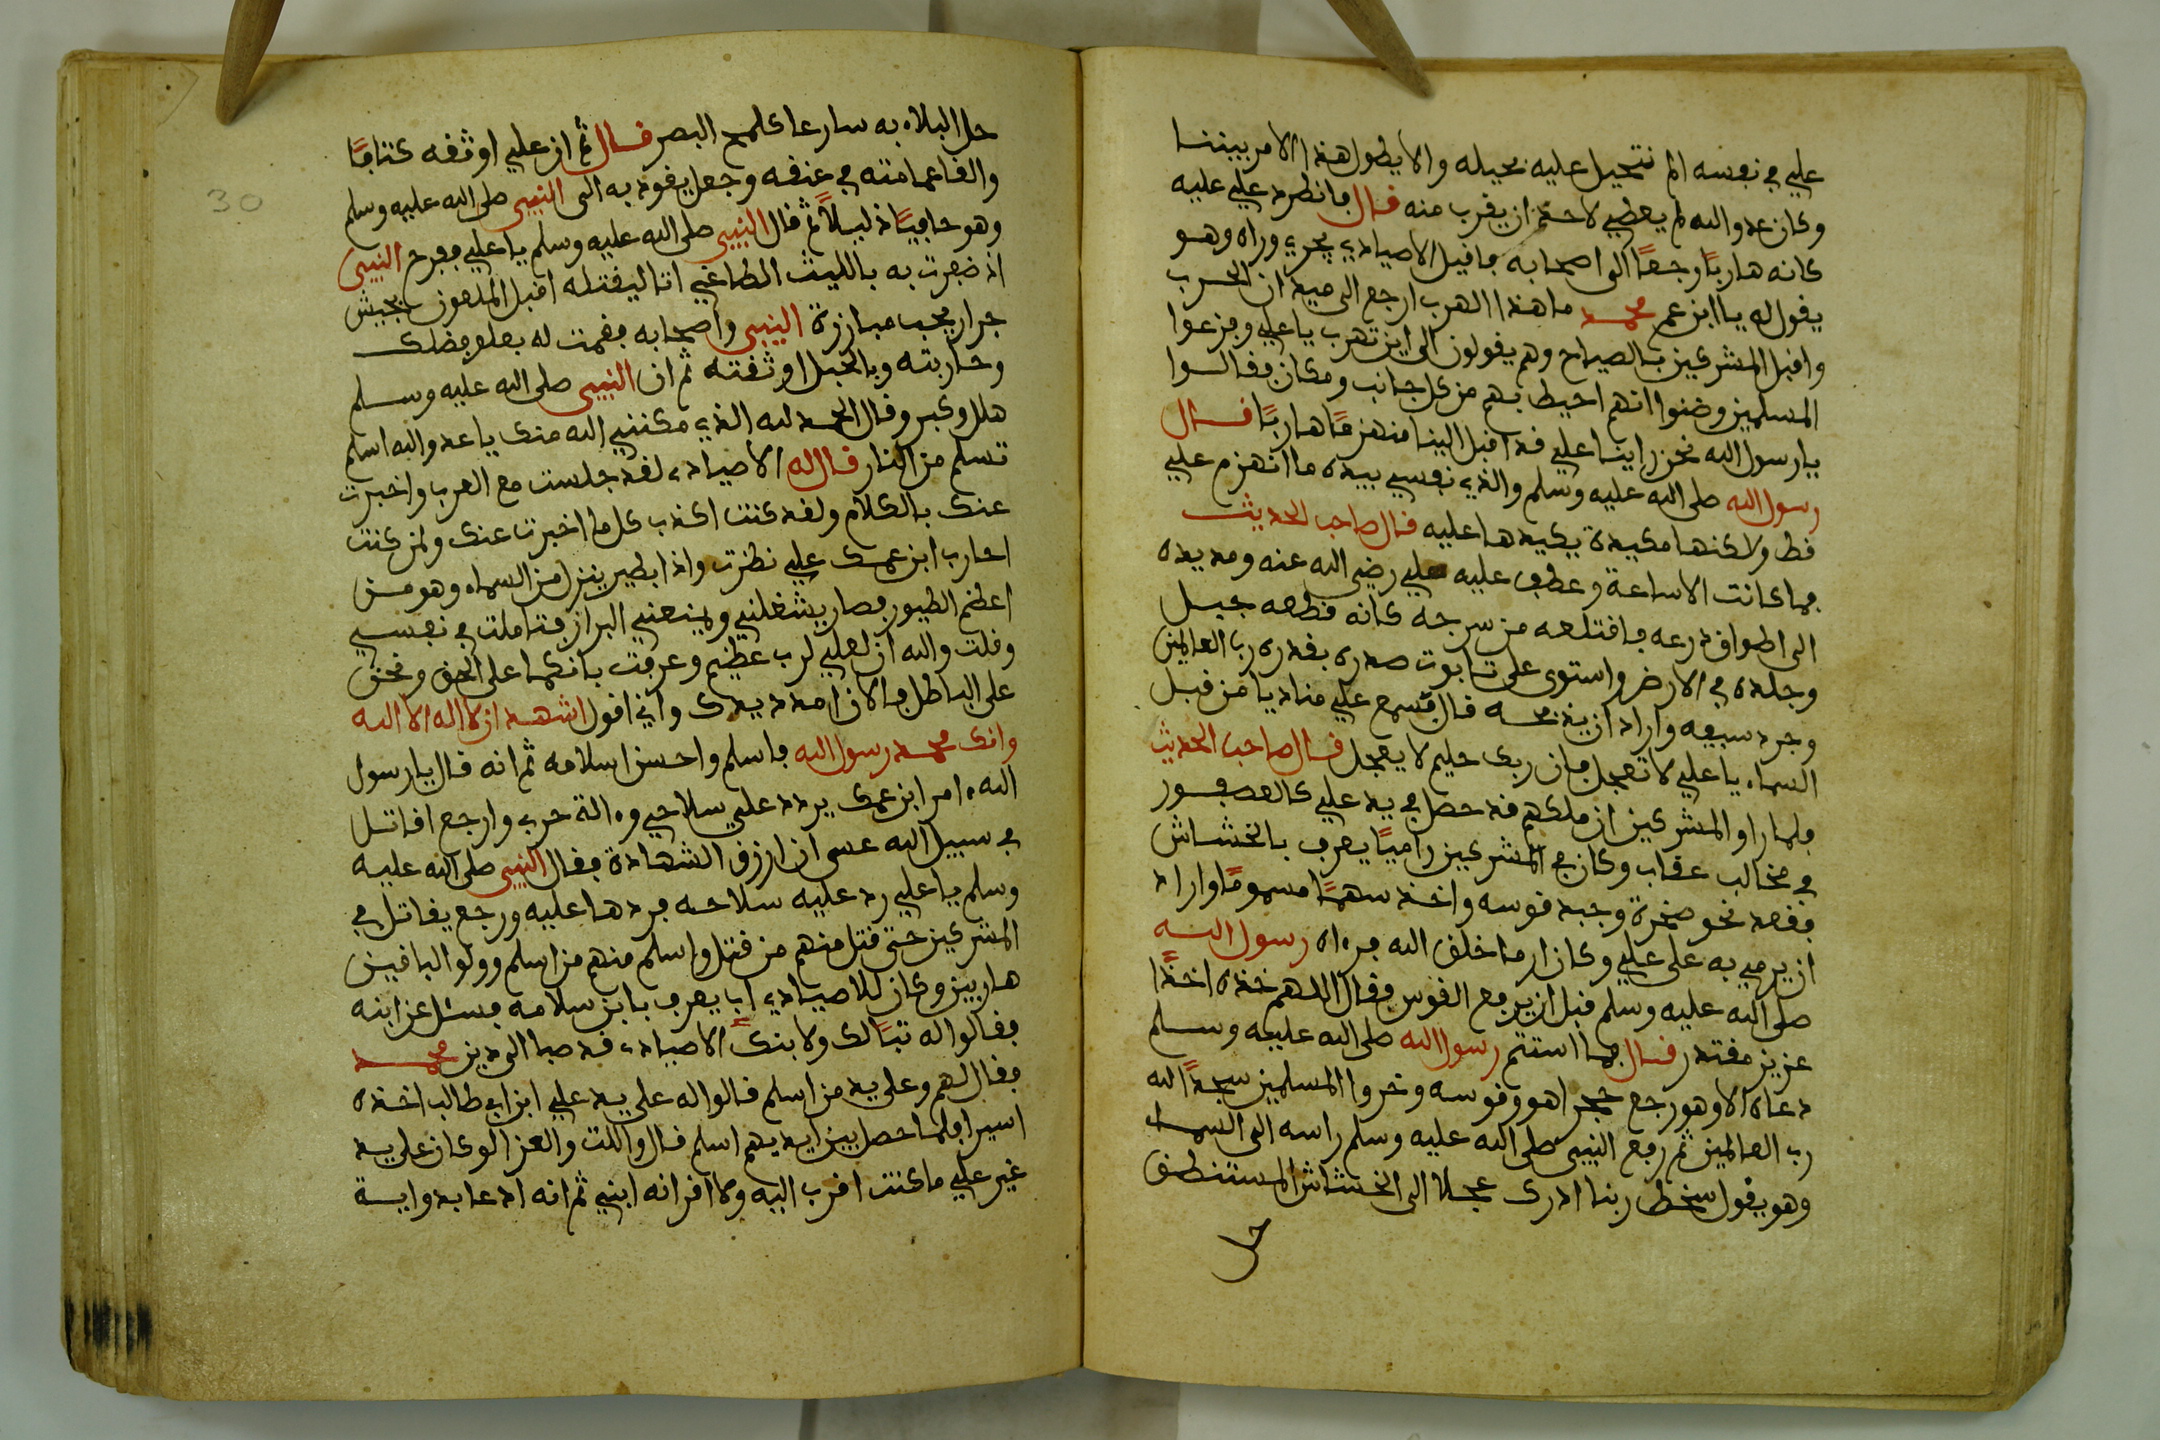 علي في نفسه ان لم نتحيل عليه بحيله والا يطول هذا الامر بيننا
وكان عدو الله لم يعطي لاحد ان يقرب منه قال فانطرد علي عليه
كانه هاربًا راجعًا الى اصحابه فاقبل الاصيادي يجري وراه وهو
يقول له يا ابن عم محمد ما هذا الهرب ارجع الى ميدان الحرب
واقبل المشركين بالصياح وهم يقولون الى اين تهرب يا علي وفزعوا
المسلمين وضنوا انهم احيط بهم من كل جانب ومكان فقالوا
يا رسول الله نحن راينا علي قد اقبل الينا منهزمًا هاربًا قال
رسول الله صلى الله عليه وسلم والذي نفسي بيده ما انهزم علي
قط ولاكنها مكيدة يكيدها عليه قال صاحب الحديث
فما كانت الا ساعة وعطف عليه علي رضي الله عنه ومد يده
الى اطواق درعه فاقتلعه من سرجه كانه قطعه جبل
وجلده في الارض واستوى على تابوت صدره بقدره رب العالمين
وجرد سيفه واراد ان يذبحه قال فسمع علي مناديا من قبل
السماء يا علي لا تعجل فان ربك حليم لا يعجل قال صاحب الحديث
فلما راو المشركين ان ملكهم قد حصل في يد علي كالعصفور
في مخالب عقاب وكان في المشركين راميًا يعرف بالخشاش
فقصد نحو صخرة وجبد قوسه واخذ سهمًا مسمومًا واراد
ان يرمي به على علي وكان ارما خلق الله فرءاه رسول الله
صلى الله عليه وسلم قبل ان يرفع القوس فقال اللهم خذه اخذًا
عزيز مقتدر قال فما استتم رسول الله صلى الله عليه وسلم
دعاه الا وهو رجع حجرا هو وقوسه وخروا المسلمين سجدًا لله
رب العالمين ثم رفع النبي صلى الله عليه وسلم راسه الى السما
وهو يقول سخط ربنا ادرك عجلا الى الخشاش المستنطق
حل
حل البلاء به سارعا كلمح البصر قال ثم ان علي اوثقه كتافًا
والقا عمامته في عنقه وجعل يقود به الى النبي صلى الله عليه وسلم
وهو حافيًا ذليلاً ثم قال النبي صلى الله عليه وسلم يا علي ففرح النبي
اذ ضفرت به بالليث الطاغي اتا ليقتله اقبل الملعون بجيش
جرار يحب مبارزة النبي واصحابه فقمت له بعلو فضلك
وحاربته وبالحبل اوثقته ثم ان النبي صلى الله عليه وسلم
هلل وكبر وقال الحمد لله الذي مكنني الله منك يا عدو الله اسلم
تسلم من النار قال له الاصيادي لقد جلست مع العرب واخبرت
عنك بالكلام ولقد كنت اكذب كل ما اخبرت عنك ولمن كنت
احارب ابن عمك علي نظرت واذا بطير ينزل من السماء وهو من
اعظم الطيور فصار يشغلني ويمنعني البراز فتاملت في نفسي
وقلت والله ان لعلي لرب عظيم وعرفت بانكما على الحق ونحن
على الباطل فالان امدد يدك واني اقول اشهد ان لا اله الا الله
وانك محمد رسول الله فاسلم واحسن اسلامه ثم انه قال يا رسول
الله امر ابن عمك يردد علي سلاحي وءالة حربي وارجع اقاتل
في سبيل الله عسى ان ارزق الشهادة فقال النبي صلى الله عليه
وسلم يا علي رد عليه سلاحه فردها عليه ورجع يقاتل في
المشركين حتى قتل منهم من قتل واسلم منهم من اسلم وولو الباقين
هاربين وكان للاصيادي ابا يعرف بابن سلامه فسئل عن ابنه
فقالوا له تبًا لك ولابنك الاصيادي قد صبا الى دين محمد
فقال لهم وعلى يد من اسلم قالوا له على يد علي ابن ابي طالب اخذه
اسيرا فلما حصل بين ايديهم اسلم قال واللت والعزا لو كان على يد
غير علي ما كنت اقرب اليه ولا اقرانه ابني ثم انه ادعا بدواية
30